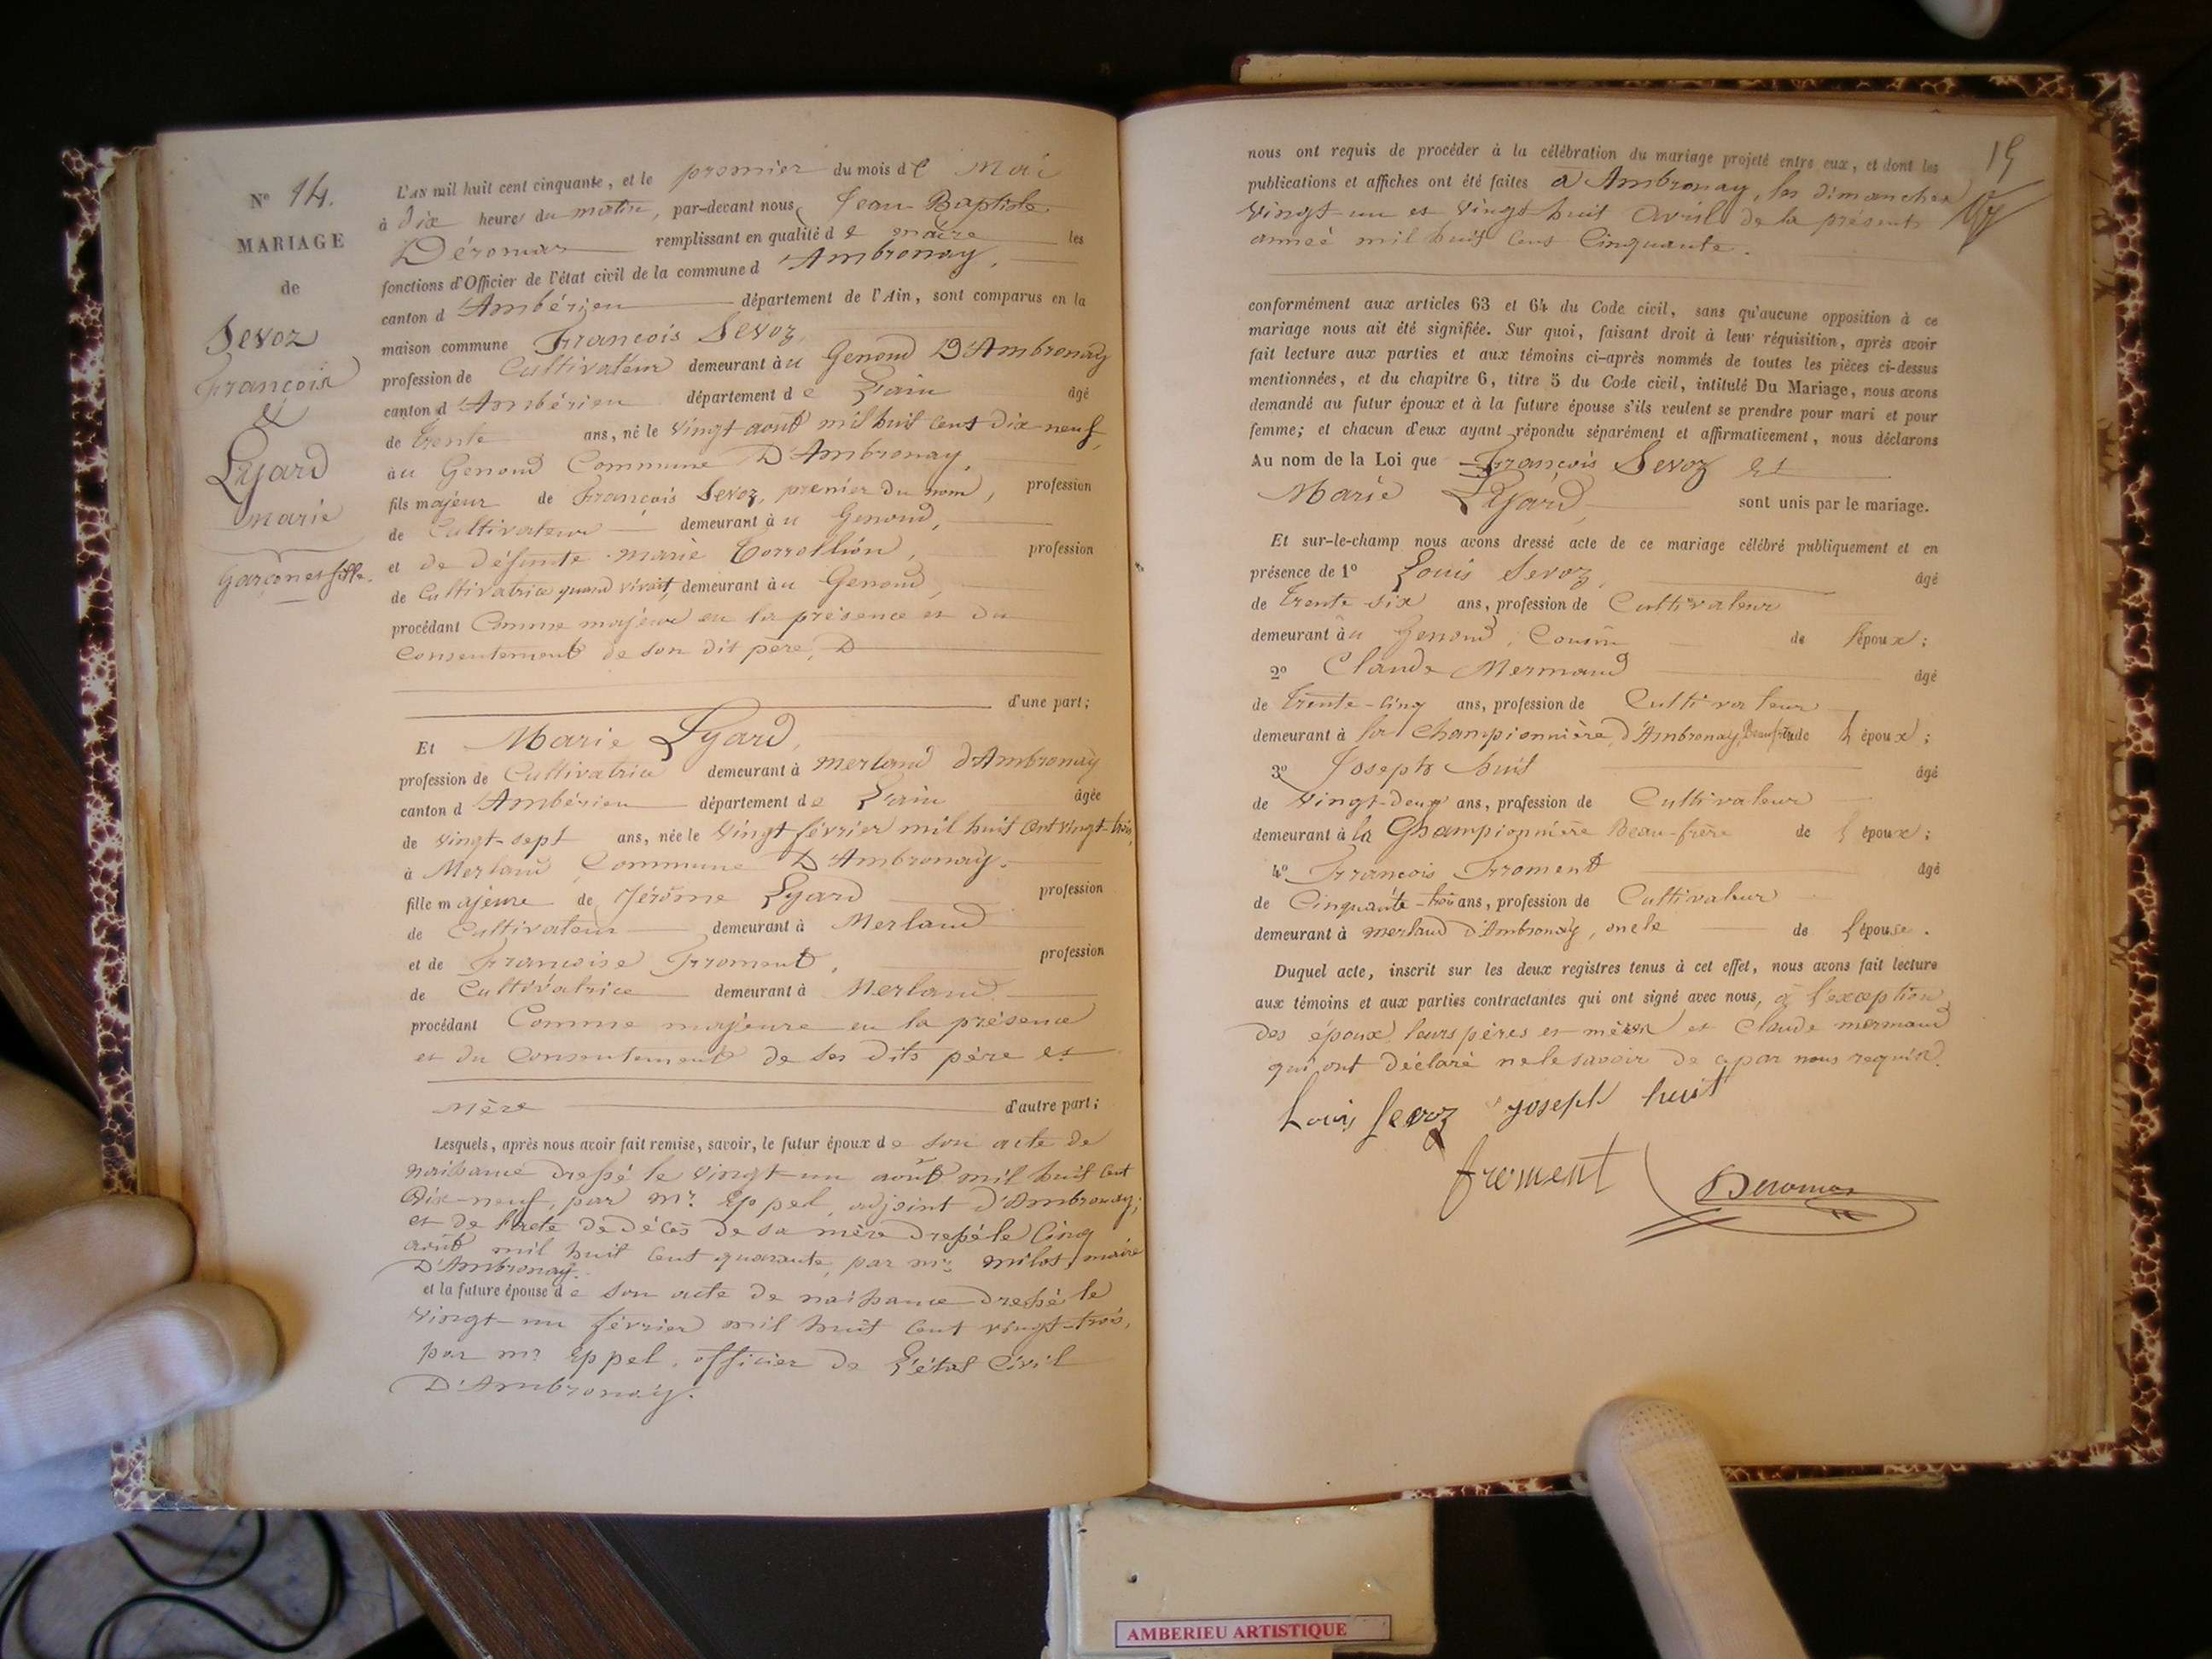 N° 14.
MARIAGE
de
Sevoz
François
&
Lyard
marie
Garçon et fille.
L'AN mil huit cent cinquante, et le premier du mois de Mai
à dix heures du matin, par-devant nous Jean Baptiste
Déromas remplissant en qualité de maire les
fonctions d'Officier de l'état civil de la commune d'Ambronay,
canton d'Ambérieu département de l'Ain, sont comparus en la
maison commune François Sevoz,
profession de Cultivateur demeurant au Genoud D'Ambronay
canton d'Ambérieu département de L'ain âgé
de trente ans, né le vingt août mil huit cent dix neuf,
au Genoud Commune D'Ambronay,
fils majeur de François Sevoz, premier du nom, profession
de Cultivateur demeurant au Genoud,
et de défunte marie profession
de Cultivatrice quand vivait, demeurant au Genoud,
procédant Comme majeur en la présence et du
Consentement de son dit père, D
d'une part;
Et Marie Lyard,
profession de Cultivatrice demeurant à merland d'Ambronay
canton d'Ambérieu département de L'ain âgée
de vingt-sept ans, née le vingt février mil huit cent vingt-trois,
à Merland, Commune D'Ambronay.
fille majeure de Jérôme Lyard profession
de Cultivateur demeurant à Merland
et de Françoise Froment, profession
de Cultivatrice demeurant à Merland
procédant Comme majeure en la présence
et du Consentement de ses dits père et
mère d'autre part;
Lesquels, après nous avoir fait remise, savoir, le futur époux de son acte de
naissance dressé le vingt-un août mil huit cent
dix-neuf, par mr. Eppel, adjoint d'Ambronay;
et de l'acte de décès de sa mère dressé le cinq
août mil huit cent quarante, par mr. milot, maire
D'Ambronay.
et la future épouse de son acte de naissance dressé le
vingt-un février mil huit cent vingt-trois,
par mr. Eppel, officier de L'état Civil
D'Ambronay.
15
nous ont requis de procéder à la célébration du mariage projeté entre eux, et dont les
publications et affiches ont été faites à Ambronay, les dimanches
vingt-un et vingt-huit avril de la présente
année mil huit cent cinquante.
conformément aux articles 63 et 64 du Code civil, sans qu'aucune opposition à ce
mariage nous ait été signifiée. Sur quoi, faisant droit à leur réquisition, après avoir
fait lecture aux parties et aux témoins ci-après nommés de toutes les pièces ci-dessus
mentionnées, et du chapitre 6, titre 5 du Code civil, intitulé Du Mariage, nous avons
demandé au futur époux et à la future épouse s'ils veulent se prendre pour mari et pour
femme; et chacun d'eux ayant répondu séparément et affirmativement, nous déclarons
Au nom de la Loi que François Sevoz et
Marie Lyard, sont unis par le mariage.
Et sur-le-champ nous avons dressé acte de ce mariage célébré publiquement et en
présence de 1° Louis Sevoz, âgé
de trente six ans, profession de Cultivateur
demeurant au Genoud, Cousin de l'époux;
2° Claude Mermand âgé
de trente-cinq ans, profession de Cultivateur
demeurant à la Championnière, d'Ambronay, Beau frère de L'époux;
3° Joseph huit âgé
de vingt-deux ans, profession de Cultivateur
demeurant à la Championnière Beau-frère de L'époux;
4° François Froment âgé
de Cinquante-trois ans, profession de Cultivateur
demeurant à merland d'Ambronay, oncle de L'épouse.
Duquel acte, inscrit sur les deux registres tenus à cet effet, nous avons fait lecture
aux témoins et aux parties contractantes qui ont signé avec nous, à l'exception
des époux, leurs pères et mère et Claude mermand
qui ont déclaré ne le savoir de ce par nous requis.
Louis Sevoz joseph huit
froment Deromas
AMBERIEU ARTISTIQUE